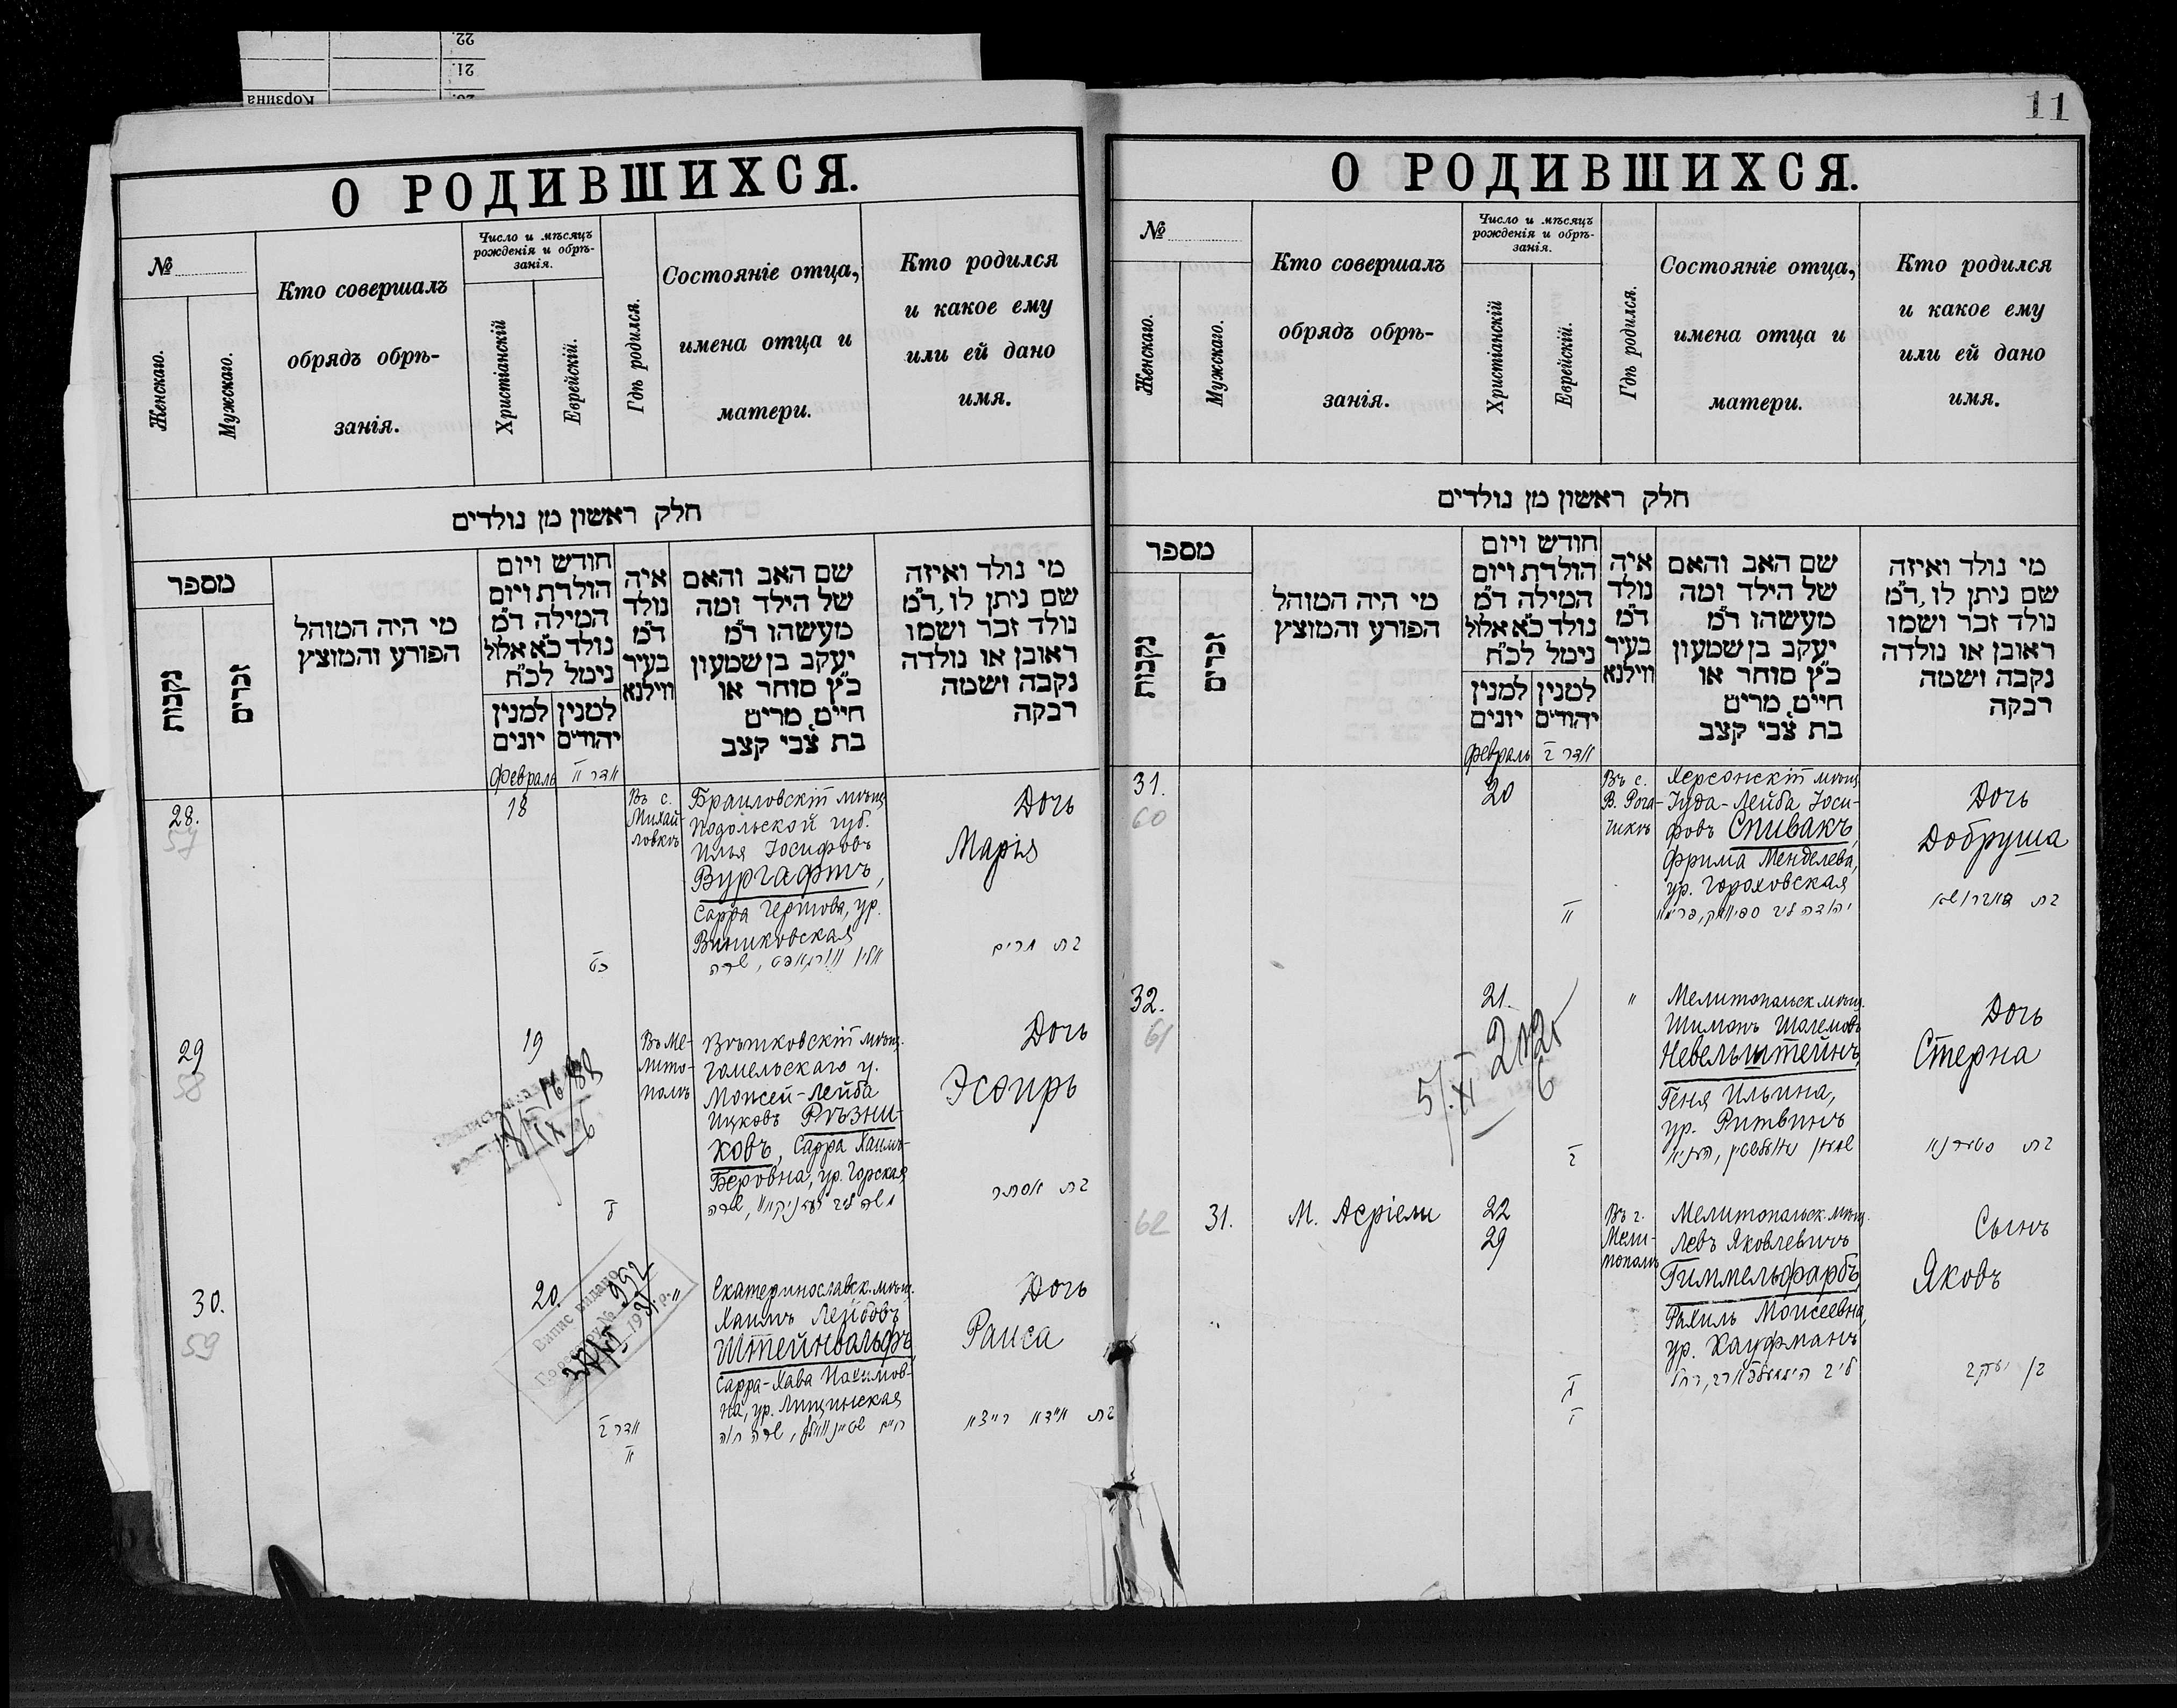 22.
21.
20.
Корзина
О РОДИВШИХСЯ.
№
Женскаго.
Мужскаго.
Кто совершалъ
обрядъ обрѣ-
занія.
Число и мѣсяцъ
рожденія и обрѣ-
занія.
Христіанскій
Еврейскій.
Гдѣ родился.
Состояніе отца,
имена отца и
матери.
Кто родился
и какое ему
или ей дано
имя.
חלק ראשון מן נולדים
מספר
נקבות
זכרים
מי היה המוהל
הפורע והמוצץ
חודש ויום
הולדת ויום
המילה ד״מ
נולד כ״א אלול
נימל לכ״ח
למנין
יונים
למנין
יהודים
איה
נולד
ד״מ
בעיר
ווילנא
שם האב והאם
של הילד ומה
מעשהו ד״מ
יעקב בן שמעון
כ״ץ סוחר או
חיים, מרים
בת צבי קצב
מי נולד ואיזה
שם ניתן לו, ד״מ
נולד זכר ושמו
ראובן או נולדה
נקבה ושמה
רבקה
Февраль
אדר א
28.
57
18
Въ с.
Михай-
ловкѣ
Браиловскій мѣщ.
Подольской губ.
Илья Іосифовъ
Вургафтъ,
Сарра Гершова, ур.
כט
Дочь
Марія
בת מרים
29
58
19
18/IX
Въ Ме-
лито-
полѣ
Вѣтковскій мѣщ.
Гомельскаго у.
Моисей-Лейба
Ицковъ Рѣзни-
ковъ, Сарра Хаимъ-
Беровна, ур. Горская
Дочь
Эсѳирь
בת אסתר
30.
59
20.
Випис видано
992
"
Екатеринославск. мѣщ.
Хаимъ Лейбовъ
Штейнвальфъ,
Сарра-Хава
на, ур. Лищинская
אדר ב
א
Дочь
Раиса
11
О РОДИВШИХСЯ.
№
Женскаго.
Мужскаго.
Кто совершалъ
обрядъ обрѣ-
занія.
Число и мѣсяцъ
рожденія и обрѣ-
занія.
Христіанскій
Еврейскій.
Гдѣ родился.
Состояніе отца,
имена отца и
матери.
Кто родился
и какое ему
или ей дано
имя.
חלק ראשון מן נולדים
מספר
נקבות
זכרים
מי היה המוהל
הפורע והמוצץ
חודש ויום
הולדת ויום
המילה ד״מ
נולד כ״א אלול
נימל לכ״ח
למנין
יונים
למנין
יהודים
איה
נולד
ד״מ
בעיר
ווילנא
שם האב והאם
של הילד ומה
מעשהו ד״מ
יעקב בן שמעון
כ״ץ סוחר או
חיים, מרים
בת צבי קצב
מי נולד ואיזה
שם ניתן לו, ד״מ
נולד זכר ושמו
ראובן או נולדה
נקבה ושמה
רבקה
Февраль
אדר ב
31.
60
20
Въ с.
В. Рога-
чикѣ
Херсонскій мѣщ.
Іуда-Лейба Іоси-
фовъ Спивакъ,
Фрима Менделева,
ур. Гороховская
א
Дочь
Добруша
32.
61
21.
"
Мелитопольск. мѣщ.
Шимонъ
Невельштейнъ,
Геня Ильина,
ур. Ритвинъ
ב
Дочь
Стерна
62
31.
М. Асріели
22
29
Въ г.
Мели-
тополѣ
Мелитопольск. мѣщ.
Левъ Яковлевичъ
Гиммельфарбъ,
Рахиль Моисеевна,
ур. Кауфманъ
ג
י
Сынъ
Яковъ
בן יעקב